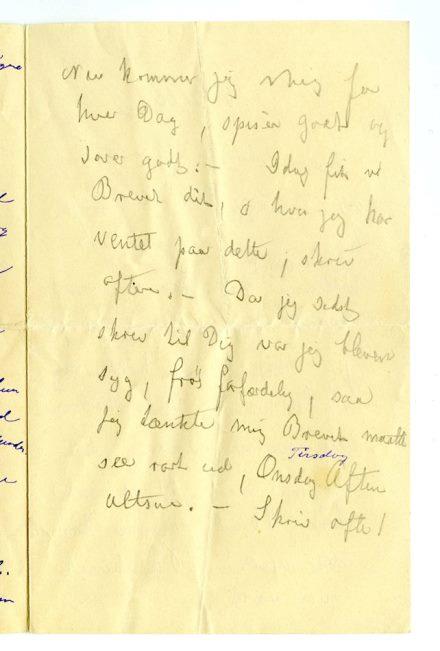 Nu kommer jeg mig for
hver Dag, spiser godt og
sover godt. – Idag fik vi
Brevet dit, o hvor jeg har
ventet paa dette, skriv
oftere. – Da jeg sidst
skrev til Dig var jeg bleven
syg, frøs forfærdelig, saa
jeg tænkte mig Brevet maatte
Tirsdag
see rart ud, Onsdag Aften
altsaa. – Skriv ofte!